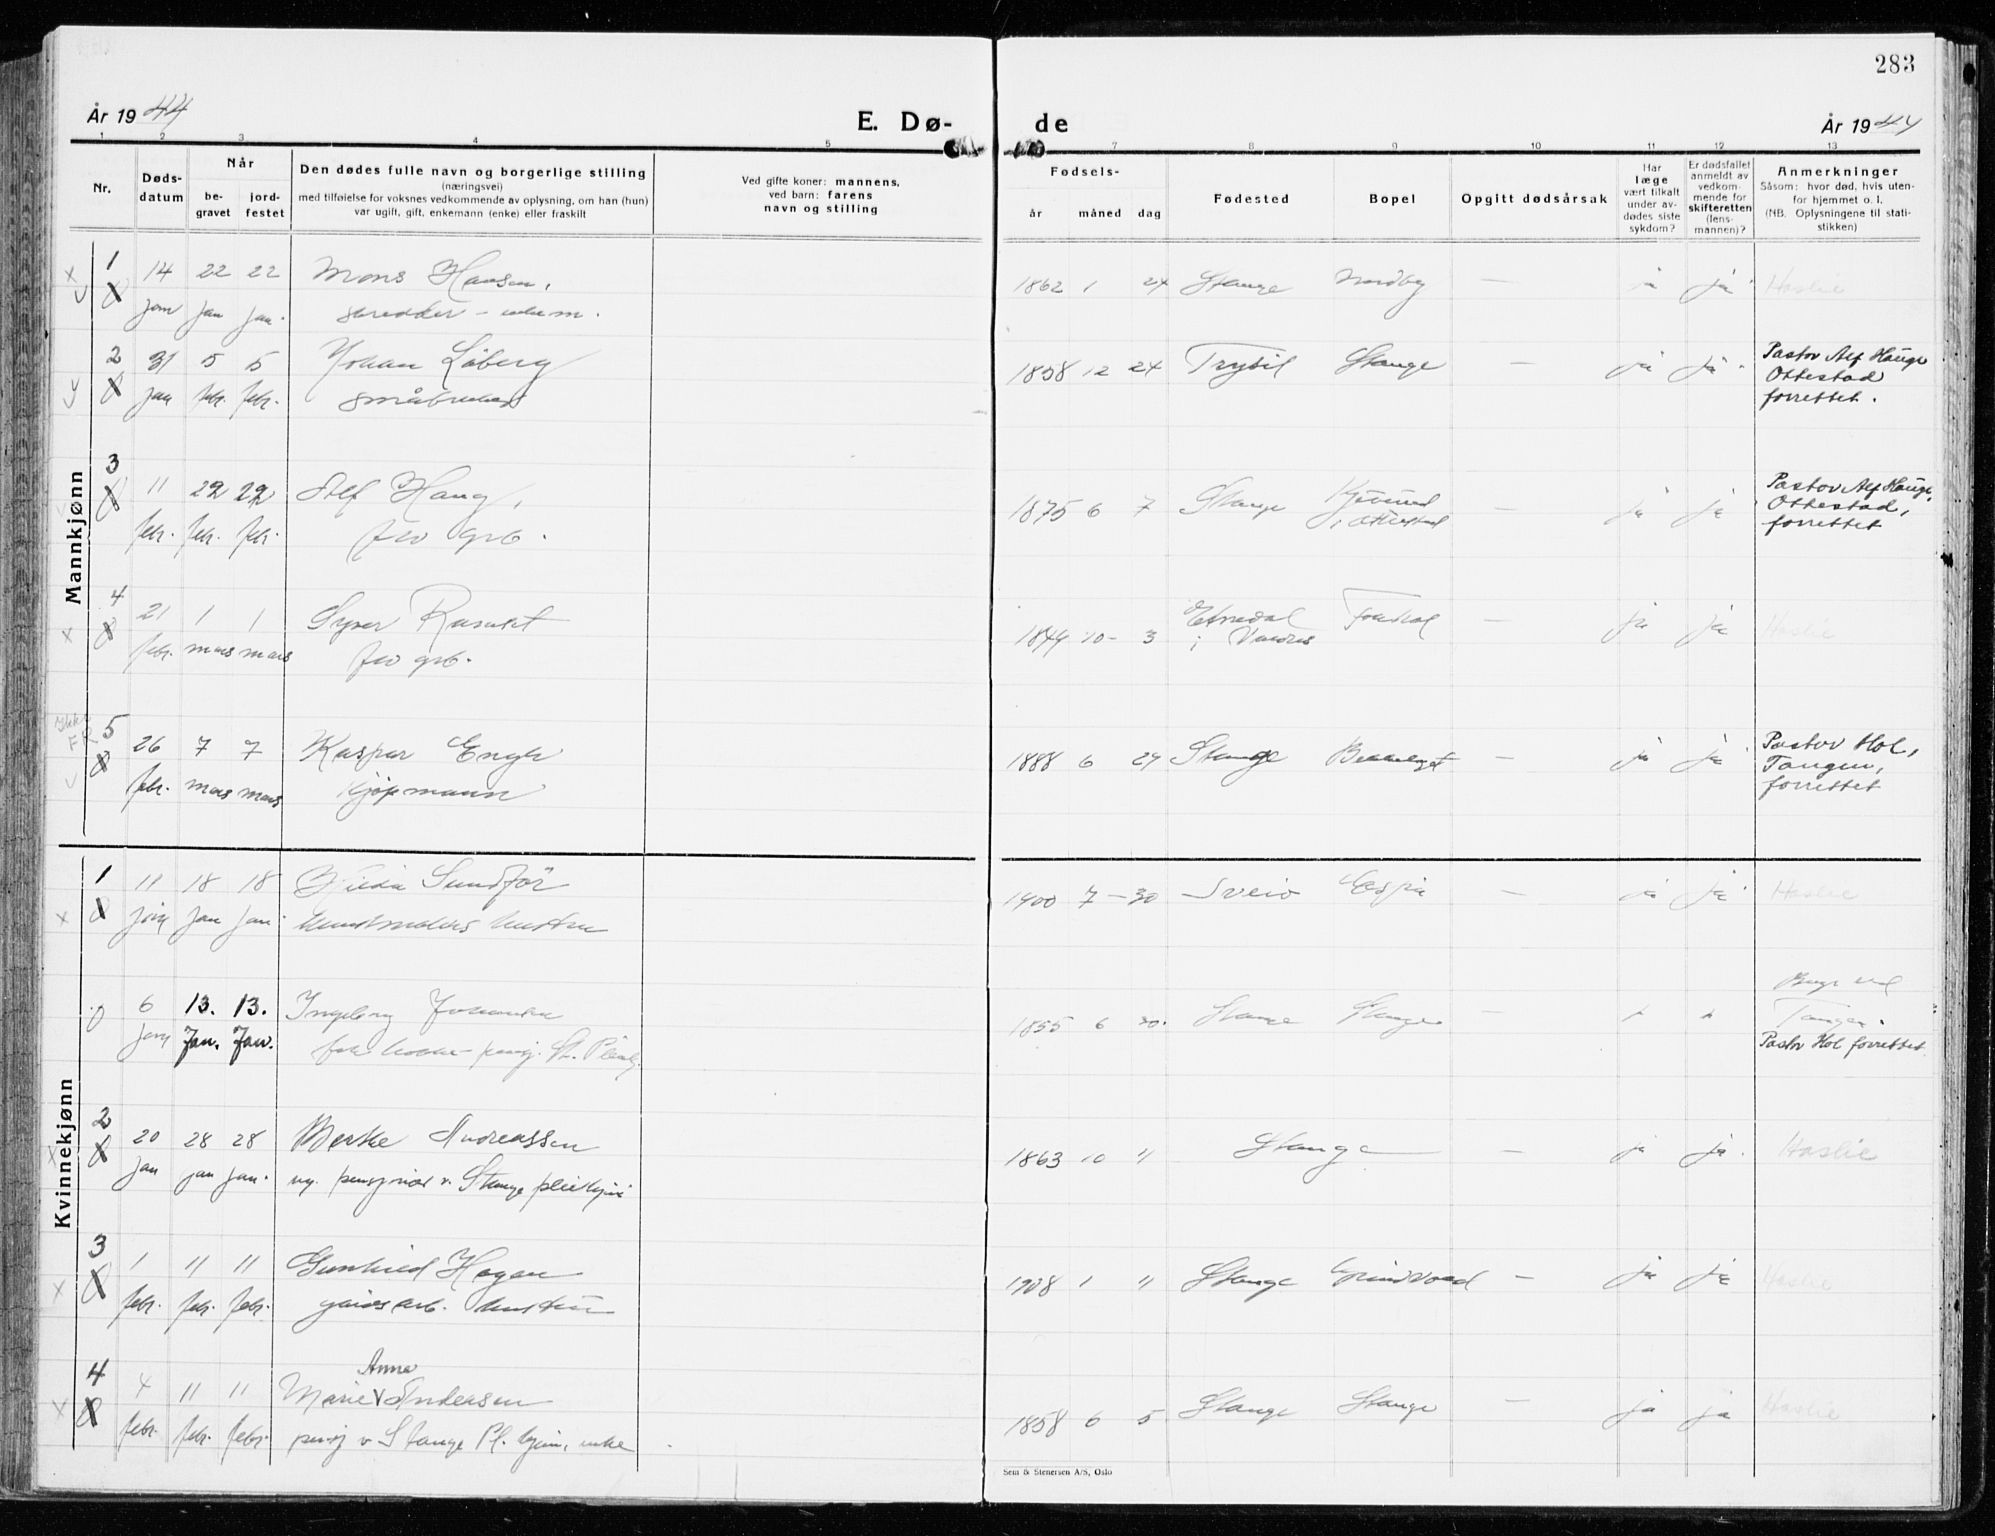 283
År 1944
E. Dø-
de
År 1944
1 2 3 4 5
7 8 9 10 11 12 13
Nr.
Døds-
datum
Når
be-
gravet
jord-
festet
Den dødes fulle navn og borgerlige stilling
(næringsvei)
med tilføielse for voksnes vedkommende av oplysning, om han (hun)
var ugift, gift, enkemann (enke) eller fraskilt
Ved gifte koner: mannens,
ved barn: farens
navn og stilling
Fødsels-
år måned dag
Fødested
Bopel
Opgitt dødsårsak
Har
læge
vært tilkalt
under av-
dødes siste
sykdom?
Er dødsfallet
anmeldt av
vedkom-
mende for
skifteretten
(lens-
mannen)?
Anmerkninger
Såsom: hvor død, hvis uten-
for hjemmet o. l.
(NB. Oplysningene til stati-
stikken)
Mannkjønn
1 14 22 22 Mons Hansen, 1862 1 24 Stange Nordby — ja ja Haslie
jan jan jan.
2 31 5 5 Johan Løberg 1858 12 24 Trysil Stange — ja ja Pastor Alf Hauge
jan febr. febr. småbruker Ottestad
forrettet.
3 11 22 22 Alf Haug, 1875 6 7 Stange — ja ja Pastor Alf Hauge,
febr. febr. febr. frv grb. i Ottestad Ottestad,
forrettet
4 21 1 1 Syver 1844 10 - 3 Etnedal ja ja Haslie
febr. mars mars frv grb. i Valdres
Ikke
FR
5 26 7 7 Kaspar Engh 1888 6 29 Stange — ja ja Pastor Hol,
febr. mars mars kjøpmann Tangen,
forrettet
Kvinnekjønn
1 11 18 18 Sundför 1900 7 - 30 Sveio Espa — ja ja Haslie
jan jan jan.
6 13. 13. Ingeborg 1855 6 30. Stange Stange —
jan Jan. Jan. Tangen.
Pastor Hol forrettet.
2 20 28 28 Berthe Andreassen 1863 10 11 Stange — ja ja. Haslie
jan jan jan. ug. v. Stange pleiehjem
3 1 11 11 Gunhild Hagen 1908 1 11 Stange — ja ja Haslie
febr. febr. febr. arb. hustru
Anna
4 4 11 11 Marie Andersen 1858 6 5 Stange Stange — ja ja Haslie
febr. febr. febr. pensj v Stange Pl. hjem, enke
Sem & Stenersen A/S, Oslo